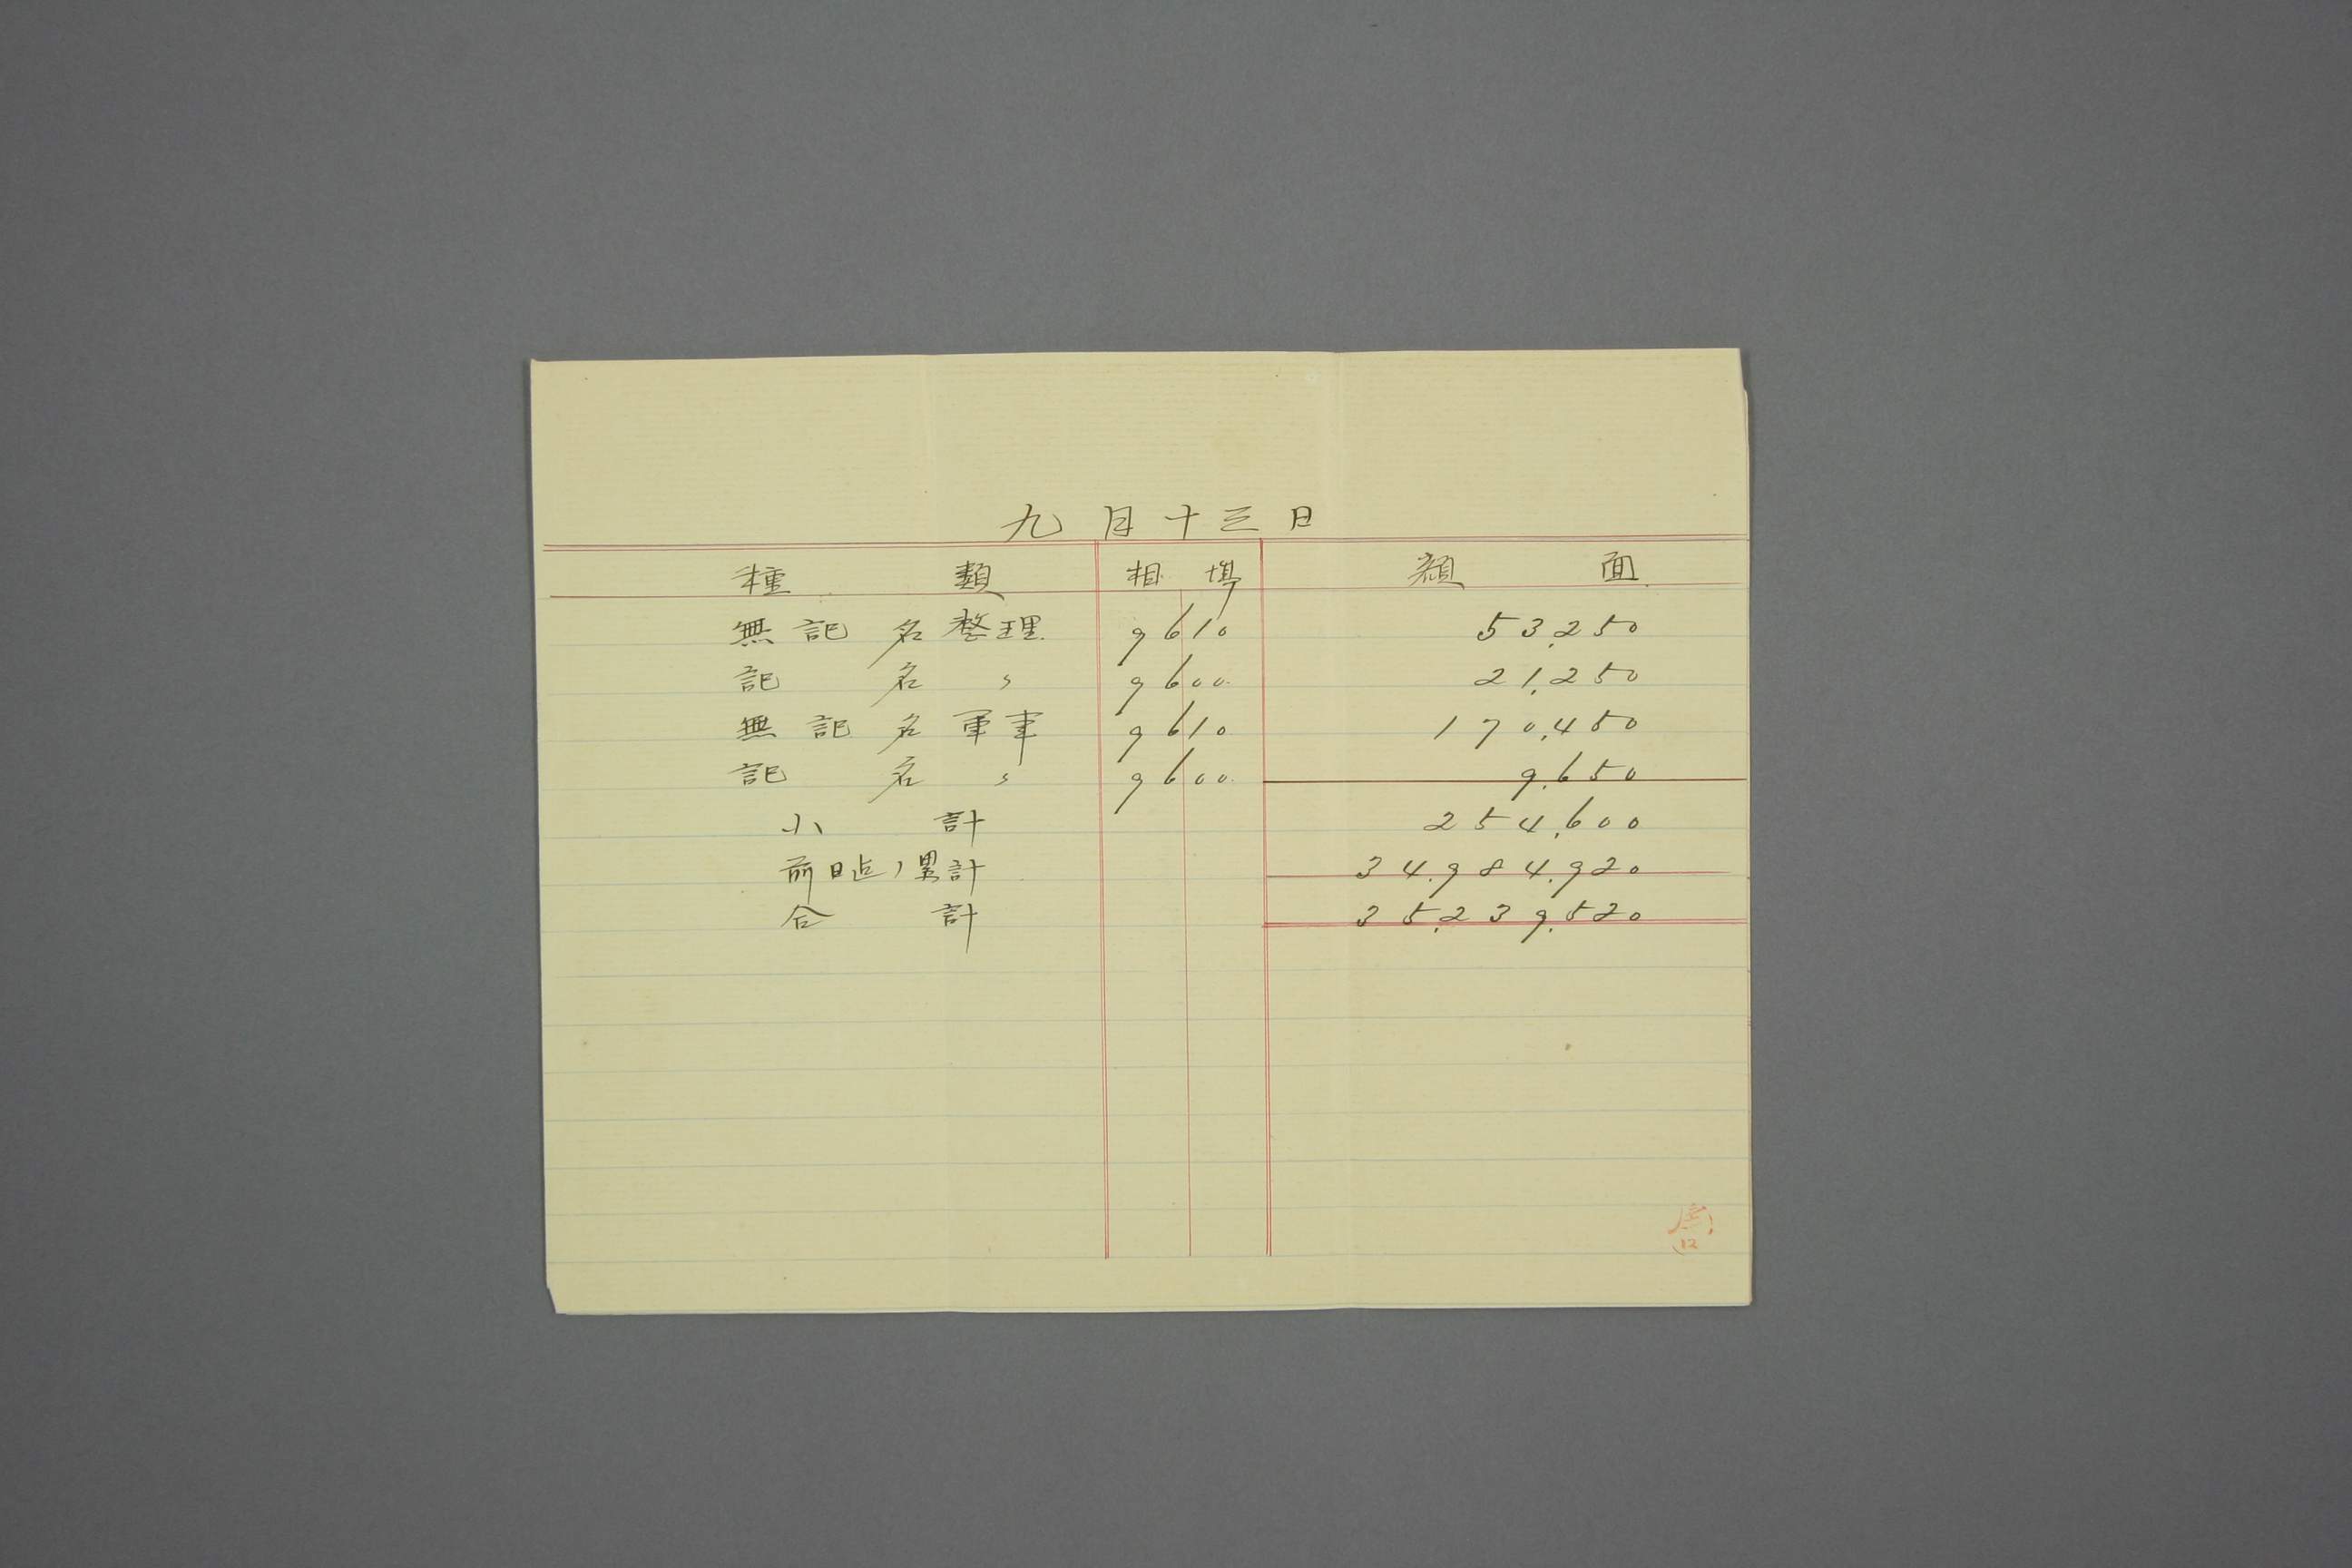 九月十三日
種類 相場 額面
無記名整理 9610 53,250
記名〃 9600 21,250
無記名軍事 9610 170,450
記名〃 9600 9,650
小計 254,600
前日迄ノ累計 34,984,920
合計 35,239,520